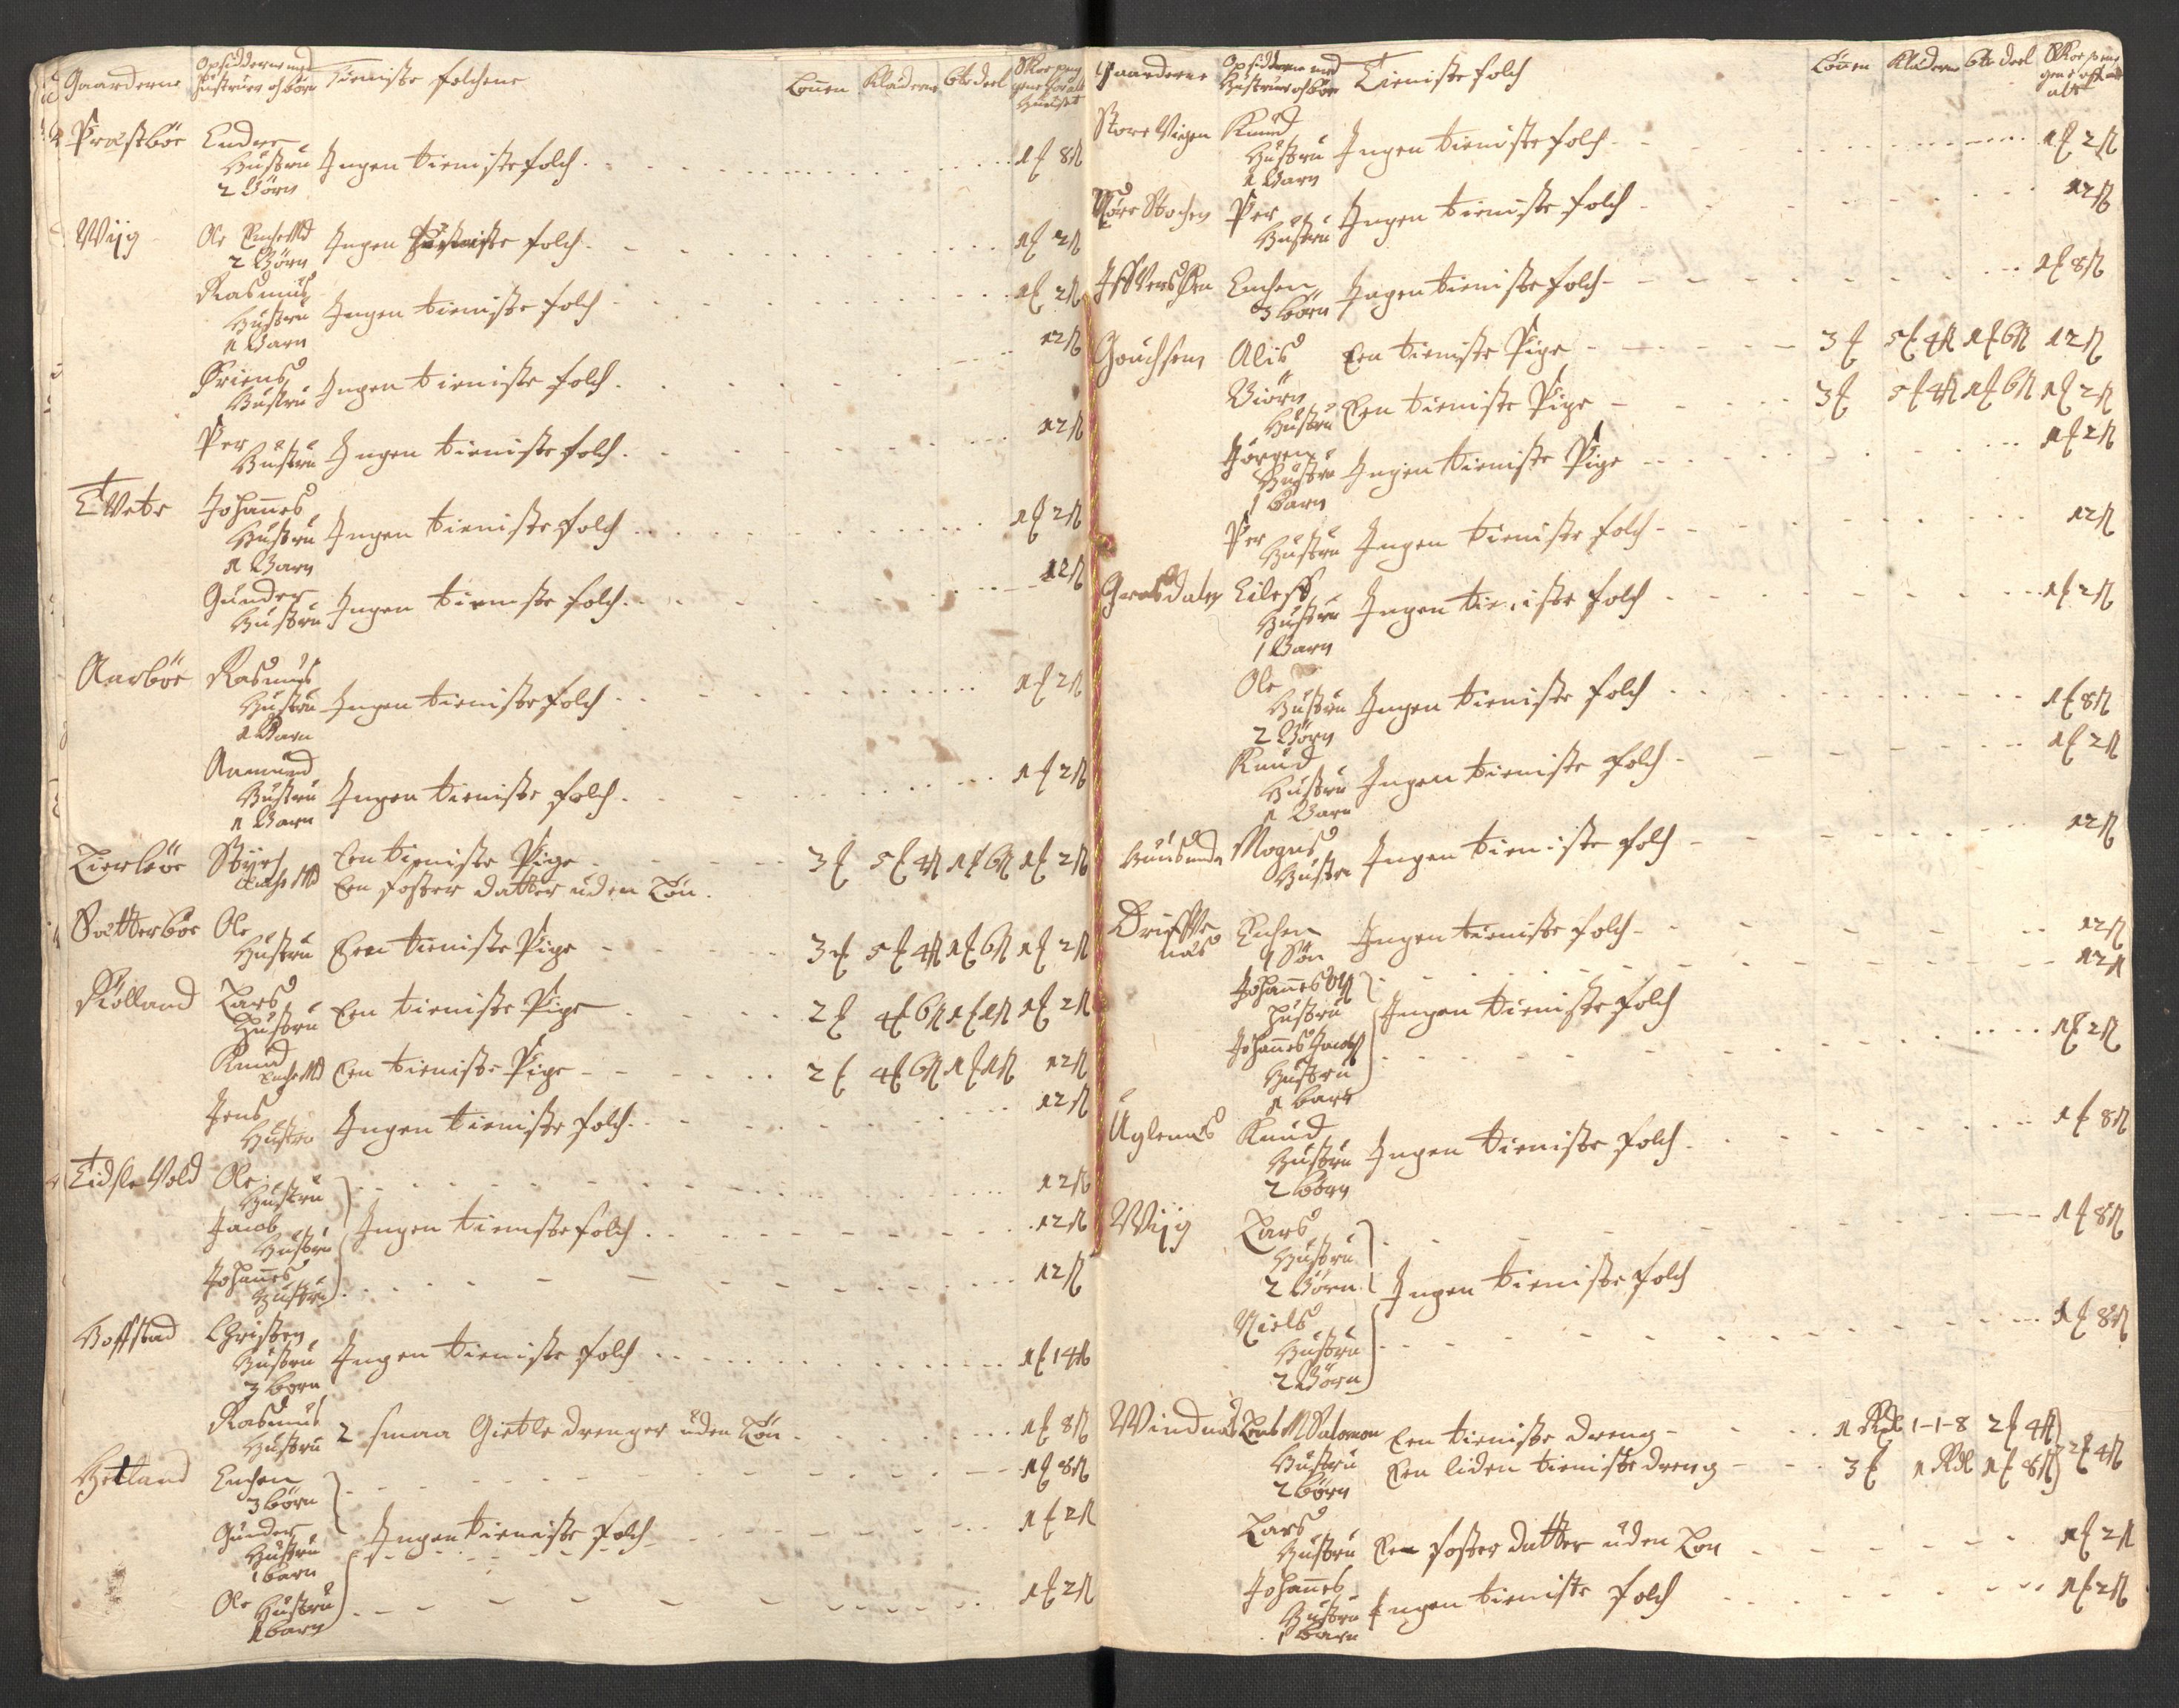 Gaarderne Opsidderne med Hustruer og børn Tieniste folchene Lønen Klæderne 6te deel
Præstbøe Endre
Hustru Ingen tieniste folch 1 £ 8 ß
2 Børn
Wiig Ole Enche Md Ingen tieniste folch 1 £ 2 ß
2 Børn
Rasmus
Hustru Ingen tieniste folch 1 £ 2 ß
1 Barn
12 ß
Hustru Ingen tieniste folch
Per
Hustru Ingen tieniste folch 12 ß
Tvete Johannes
Hustru Ingen tieniste folch 1 £ 2 ß
1 Barn
Gunder
Hustru Ingen tieniste folch 12 ß
Aarbøe Rasmus
Hustru Ingen tieniste folch 1 £ 2 ß
1 Barn
Aamund
Hustru Ingen tieniste folch 1 £ 2 ß
1 Barn
Lierbøe Een tieniste Pige 3 £ 5 £ 4 ß 1 £ 6 ß 1 £ 2 ß
Enche Md Een foster datter uden Løn
Sætterbøe Ole
Hustru Een tieniste Pige 3 £ 5 £ 4 ß 1 £ 6 ß 1 £ 2 ß
Kiølland Lars
Hustru Een tieniste Pige 2 £ 4 £ 6 ß 1 £ 1 ß 1 £ 2 ß
Knud
Enche Md Een tieniste Pige 2 £ 4 £ 6 ß 1 £ 1 ß 12 ß
Jens
Hustru Ingen tieniste folch 12 ß
Tidsle Vold Ole
Hustru 12 ß
Jacob
Hustru Ingen tieniste folch 12 ß
Johannes
Hustru 12 ß
Hoffstad Christen
Hustru Ingen tieniste folch 1 £ 14 ß
3 born
Rasmus
Hustru 2 smaa Gietle drenger uden Løn 1 £ 8 ß
Hetland Enchen
3 børn 1 £ 8 ß
Gunder
Hustru Ingen tieniste folch 1 £ 2 ß
1 barn
Ole Hustru 1 £ 2 ß
1 barn
Gaarderne Opsidderne med Hustruer og børn Tieniste folch Lønen Klæderne 6te deel
Store Vigen Knud
Hustru Ingen tieniste folch 1 £ 2 ß
1 Barn
Nøre Stochen Per
Hustru Ingen tieniste folch 12 ß
Enchen Ingen tieniste folch 1 £ 8 ß
3 børn
Gouchsem Alis Een tieniste Pige 3 £ 5 £ 4 ß 1 £ 6 ß 12 ß
Biørn
Hustru Een tieniste Pige 3 £ 5 £ 4 ß 1 £ 6 ß 1 £ 2 ß
Jørgen
Hustru Ingen tieniste Pige 1 £ 2 ß
1 barn
Per
Hustru Ingen tieniste folch 12 ß
Grasdalen Eileff
Hustru Ingen tieniste folch 1 £ 2 ß
1 Barn
Ole
Hustru Ingen tieniste folch 1 £ 8 ß
2 Børn
Knud
Hustru Ingen tieniste folch 1 £ 2 ß
1 Barn
Mogns
Hustru Ingen tieniste folch 12 ß
Driffve Enchen Ingen tieniste folch 12 ß
næs 1 Søn
Johannes Olß 12 ß
Hustru Ingen tieniste folch
Johannes Jacobß 1 £ 2 ß
Hustru
1 barn
Uglenæs Knud
Hustru Ingen tieniste folch 1 £ 8 ß
2 børn
Wiig Lars
Hustru 1 £ 8 ß
2 Børn Ingen tieniste folch
Niels
Hustru 1 £ 8 ß
2 Børn
Windnæs Salomon Een tieniste dreng 1 Rdl 1-1-8 2 £ 4 ß
Hustru Een liden tieniste dreng 3 £ 1 Rdl 1 £ 8 ß 2 £ 4 ß
2 børn
Lars
Hustru Een foster datter uden Løn 1 £ 2 ß
Johannes
Hustru Ingen tieniste folch 1 £ 2 ß
1 barn